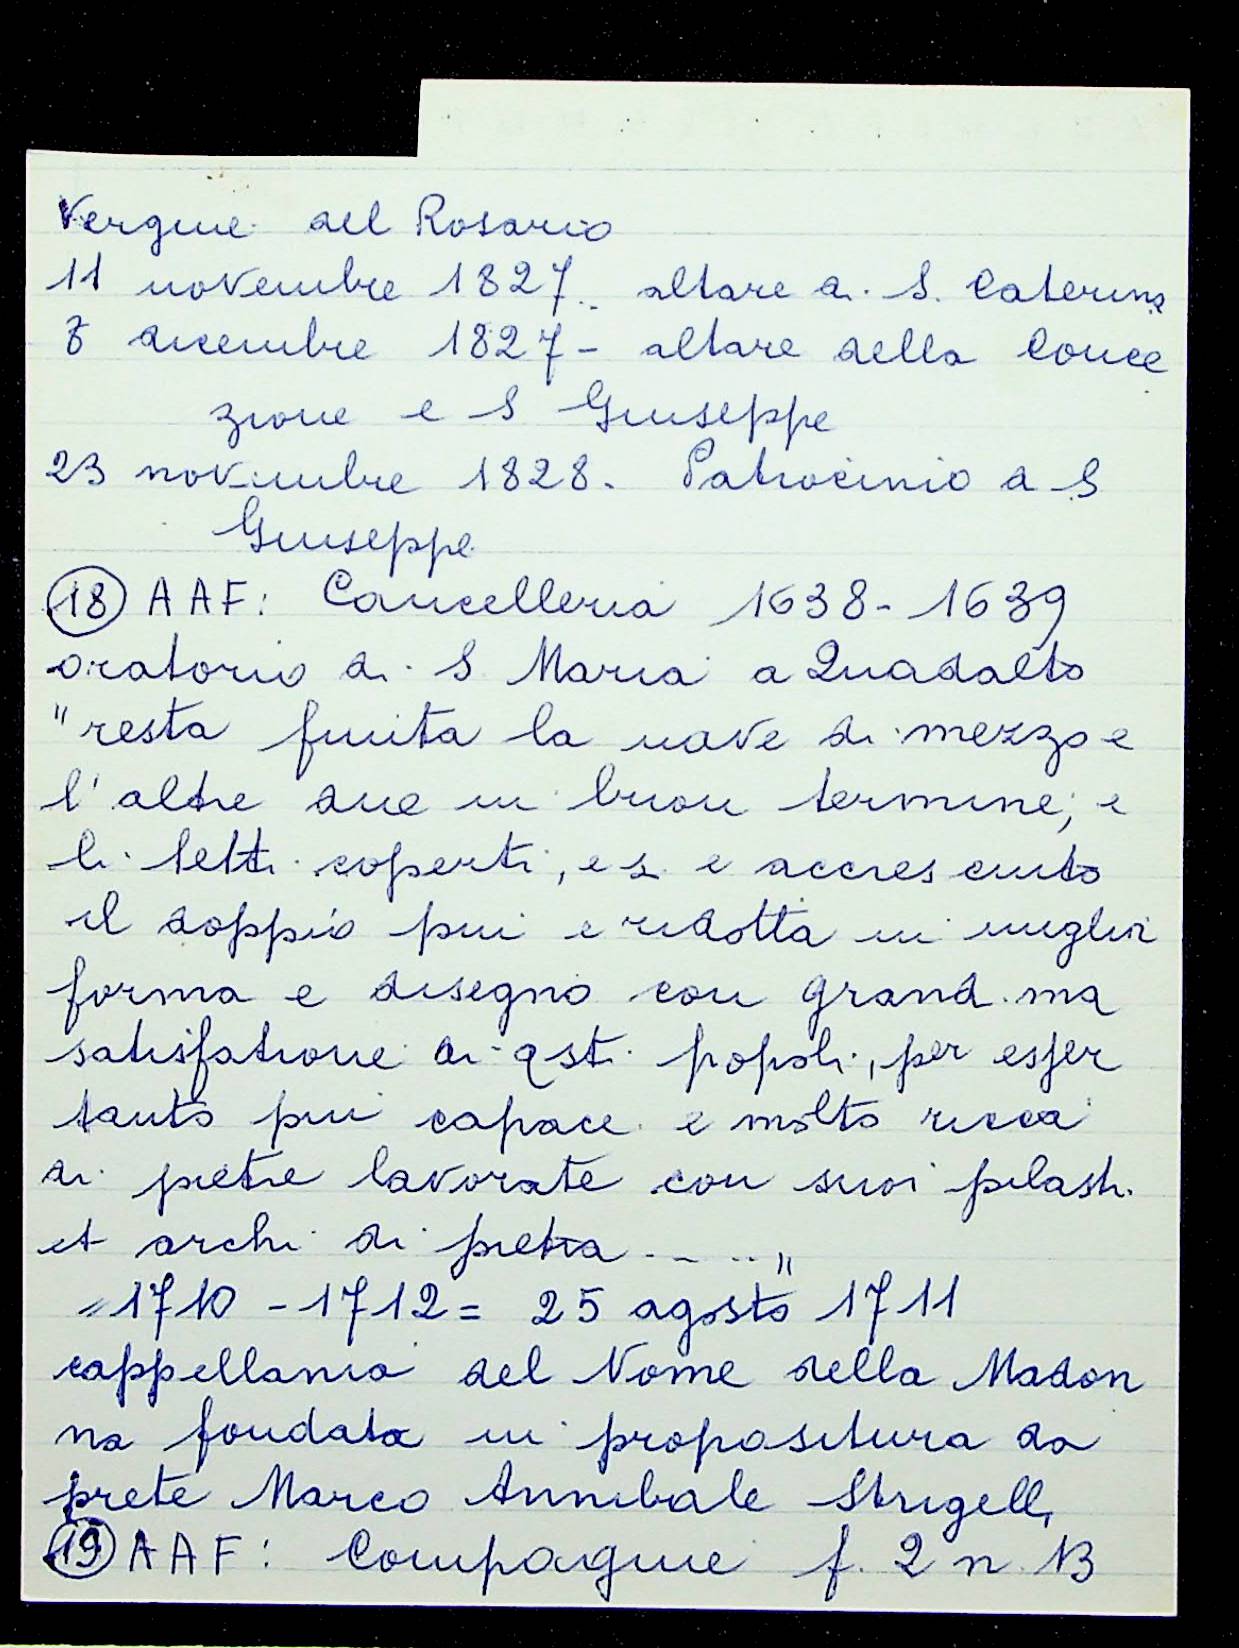 Vergine del Rosario
11 novembre 1827. altare di S. Caterina
8 dicembre 1827 - altare della Conce
zione e S Giuseppe
23 novembre 1828. Patrocinio di S
Giuseppe
18 AAF: Cancelleria 1638-1639
oratorio di S Maria a Quadalto
"resta finita la nave di mezzo e
l'altre due in buon termine, e
li tetti coperti, e s'è accresciuto
il doppio più e ridotta in miglior
forma e disegno con grand.ma
satisfatione di qsti popoli, per esser
tanto più capace e molto ricca
di pietre lavorate con suoi pilastri
et archi di pietra ....."
= 1710 - 1712 = 25 agosto 1711
cappellania del Nome della Madon
na fondata in propositura da
prete Marco Annibale Strigelli
19 AAF: Compagnie f. 2 n. 13